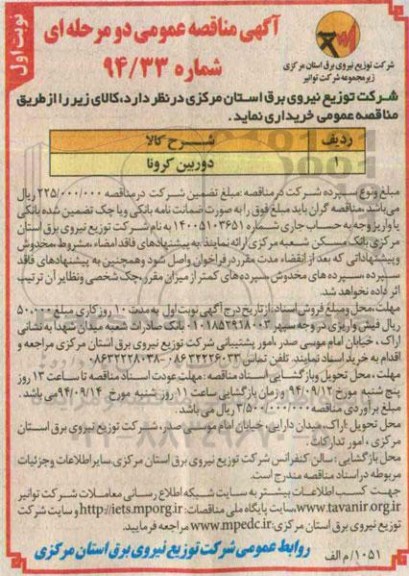 نوبت اول
آگهی مناقصه عمومی دو مرحله ای
شماره ۹۴/۳۳
شرکت توزیع نیروی برق استان مرکزی
زیرمجموعه شرکت توانیر
شرکت توزیع نیروی برق استان مرکزی در نظر دارد، کالای زیر را از طریق
مناقصه عمومی خریداری نماید.
ردیف شرح کالا
۱ دوربین کرونا
مبلغ ونوع سپرده شرکت در مناقصه: مبلغ تضمین شرکت در مناقصه ۲۲۵/۰۰۰/۰۰۰ ریال
می باشد. مناقصه گران باید مبلغ فوق را به صورت ضمانت نامه بانکی ویا چک تضمین شده بانکی
یا واریز وجه به حساب جاری شماره ۱۴۰۰۵۱۰۳۶۵۱ به نام شرکت توزیع نیروی برق استان
مرکزی بانک مسکن شعبه مرکزی ارائه نمایند. به پیشنهادهای فاقد امضاء، مشروط، مخدوش
وپیشنهاداتی که بعد از انقضاء مدت مقرر در فراخوان واصل شود وهمچنین به پیشنهادهای فاقد
سپرده، سپرده های مخدوش، سپرده های کمتر از میزان مقرر، چک شخصی ونظایر آن ترتیب
اثر داده نخواهد شد.
مهلت، محل ومبلغ فروش اسناد: از تاریخ درج آگهی نوبت اول به مدت ۱۰ روز کاری مبلغ ۵۰۰۰۰۰
ریال فیش واریزی در وجه سپهر ۰۱۰۱۸۵۲۹۱۸۰۰۳ بانک صادرات شعبه میدان شهدا به نشانی
اراک، خیابان امام موسی صدر، امور پشتیبانی شرکت توزیع نیروی برق استان مرکزی مراجعه و
اقدام به خرید اسناد نمایند. تلفن تماس ۰۸۶۳۲۲۲۶۰۳۳-۰۸۶۳۲۲۲۸۰۳۸
مهلت، محل تحویل وبازگشایی اسناد مناقصه: مهلت عودت اسناد مناقصه تا ساعت ۱۳ روز
پنج شنبه مورخ ۹۴/۰۹/۱۲ وزمان بازگشایی ساعت ۱۱ روز شنبه مورخ ۹۴/۰۹/۱۴ می باشد.
مبلغ برآوردی مناقصه ۳/۵۰۰/۰۰۰/۰۰۰ ریال می باشد.
محل تحویل: اراک، میدان دارایی، خیابان امام موسی صدر، شرکت توزیع نیروی برق استان
مرکزی، امور تدارکات.
محل بازگشایی: سالن کنفرانس شرکت توزیع نیروی برق استان مرکزی. سایر اطلاعات وجزئیات
مربوطه در اسناد مناقصه مندرج است.
جهت کسب اطلاعات بیشتر به سایت شبکه اطلاع رسانی معاملات شرکت توانیر
www.tavanir.org.ir، سایت پایگاه ملی مناقصات: http://iets.mporg.ir و سایت شرکت
توزیع نیروی برق استان مرکزی: www.mpedc.ir مراجعه فرمایید.
۱۰۵۱/م الف روابط عمومی شرکت توزیع نیروی برق استان مرکزی